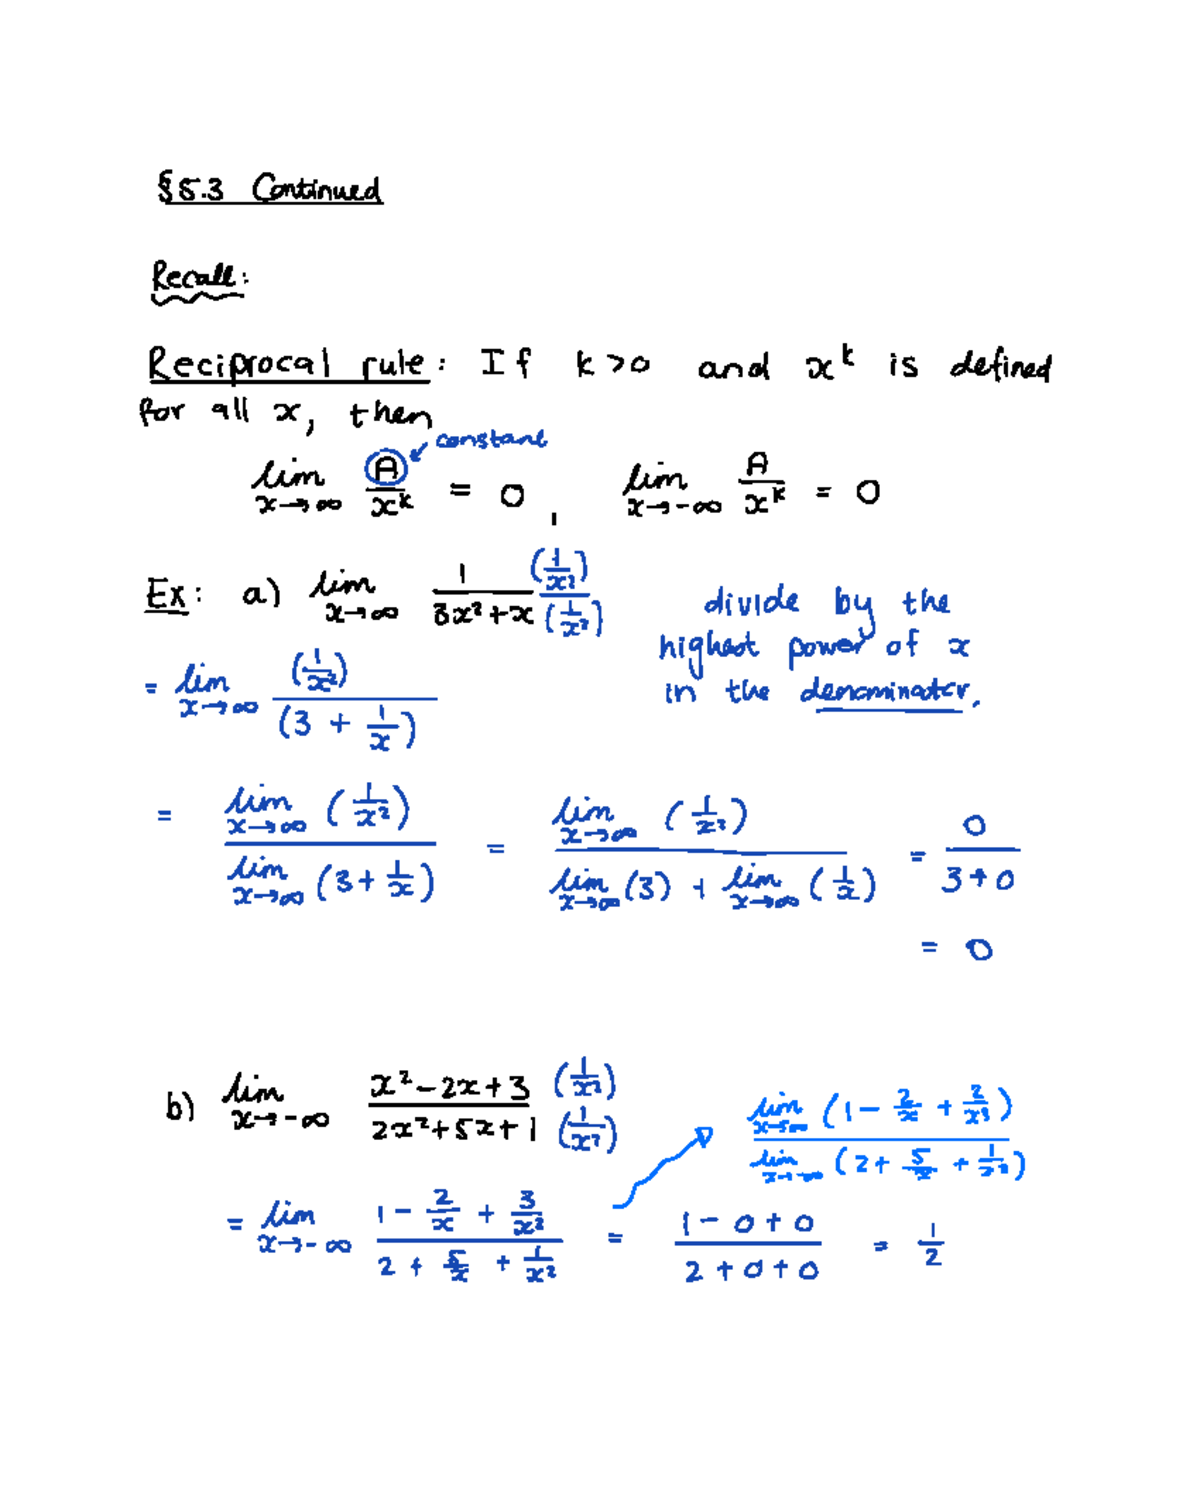 §5.3 Continued
Recall:
Reciprocal rule: If k>0 and x^k is defined
for all x, then
constant
lim x→∞ A/x^k = 0, lim x→-∞ A/x^k = 0
Ex: a) lim x→∞ 1/(3x²+x) (1/x²)/(1/x²)
divide by the
highest power of x
in the denominator.
= lim x→∞ (1/x²)/(3 + 1/x)
= lim x→∞ (1/x²) / lim x→∞ (3+1/x) = lim x→∞ (1/x²) / lim x→∞ (3) + lim x→∞ (1/x) = 0/(3+0)
= 0
b) lim x→-∞ (x²-2x+3)/(2x²+5x+1) (1/x²)/(1/x²)
lim (1 - 2/x + ) / lim x→-∞ (2 + 5/x + 1/x²)
= lim x→-∞ (1 - 2/x + 3/x²)/(2 + 5/x + 1/x²) = (1-0+0)/(2+0+0) = 1/2